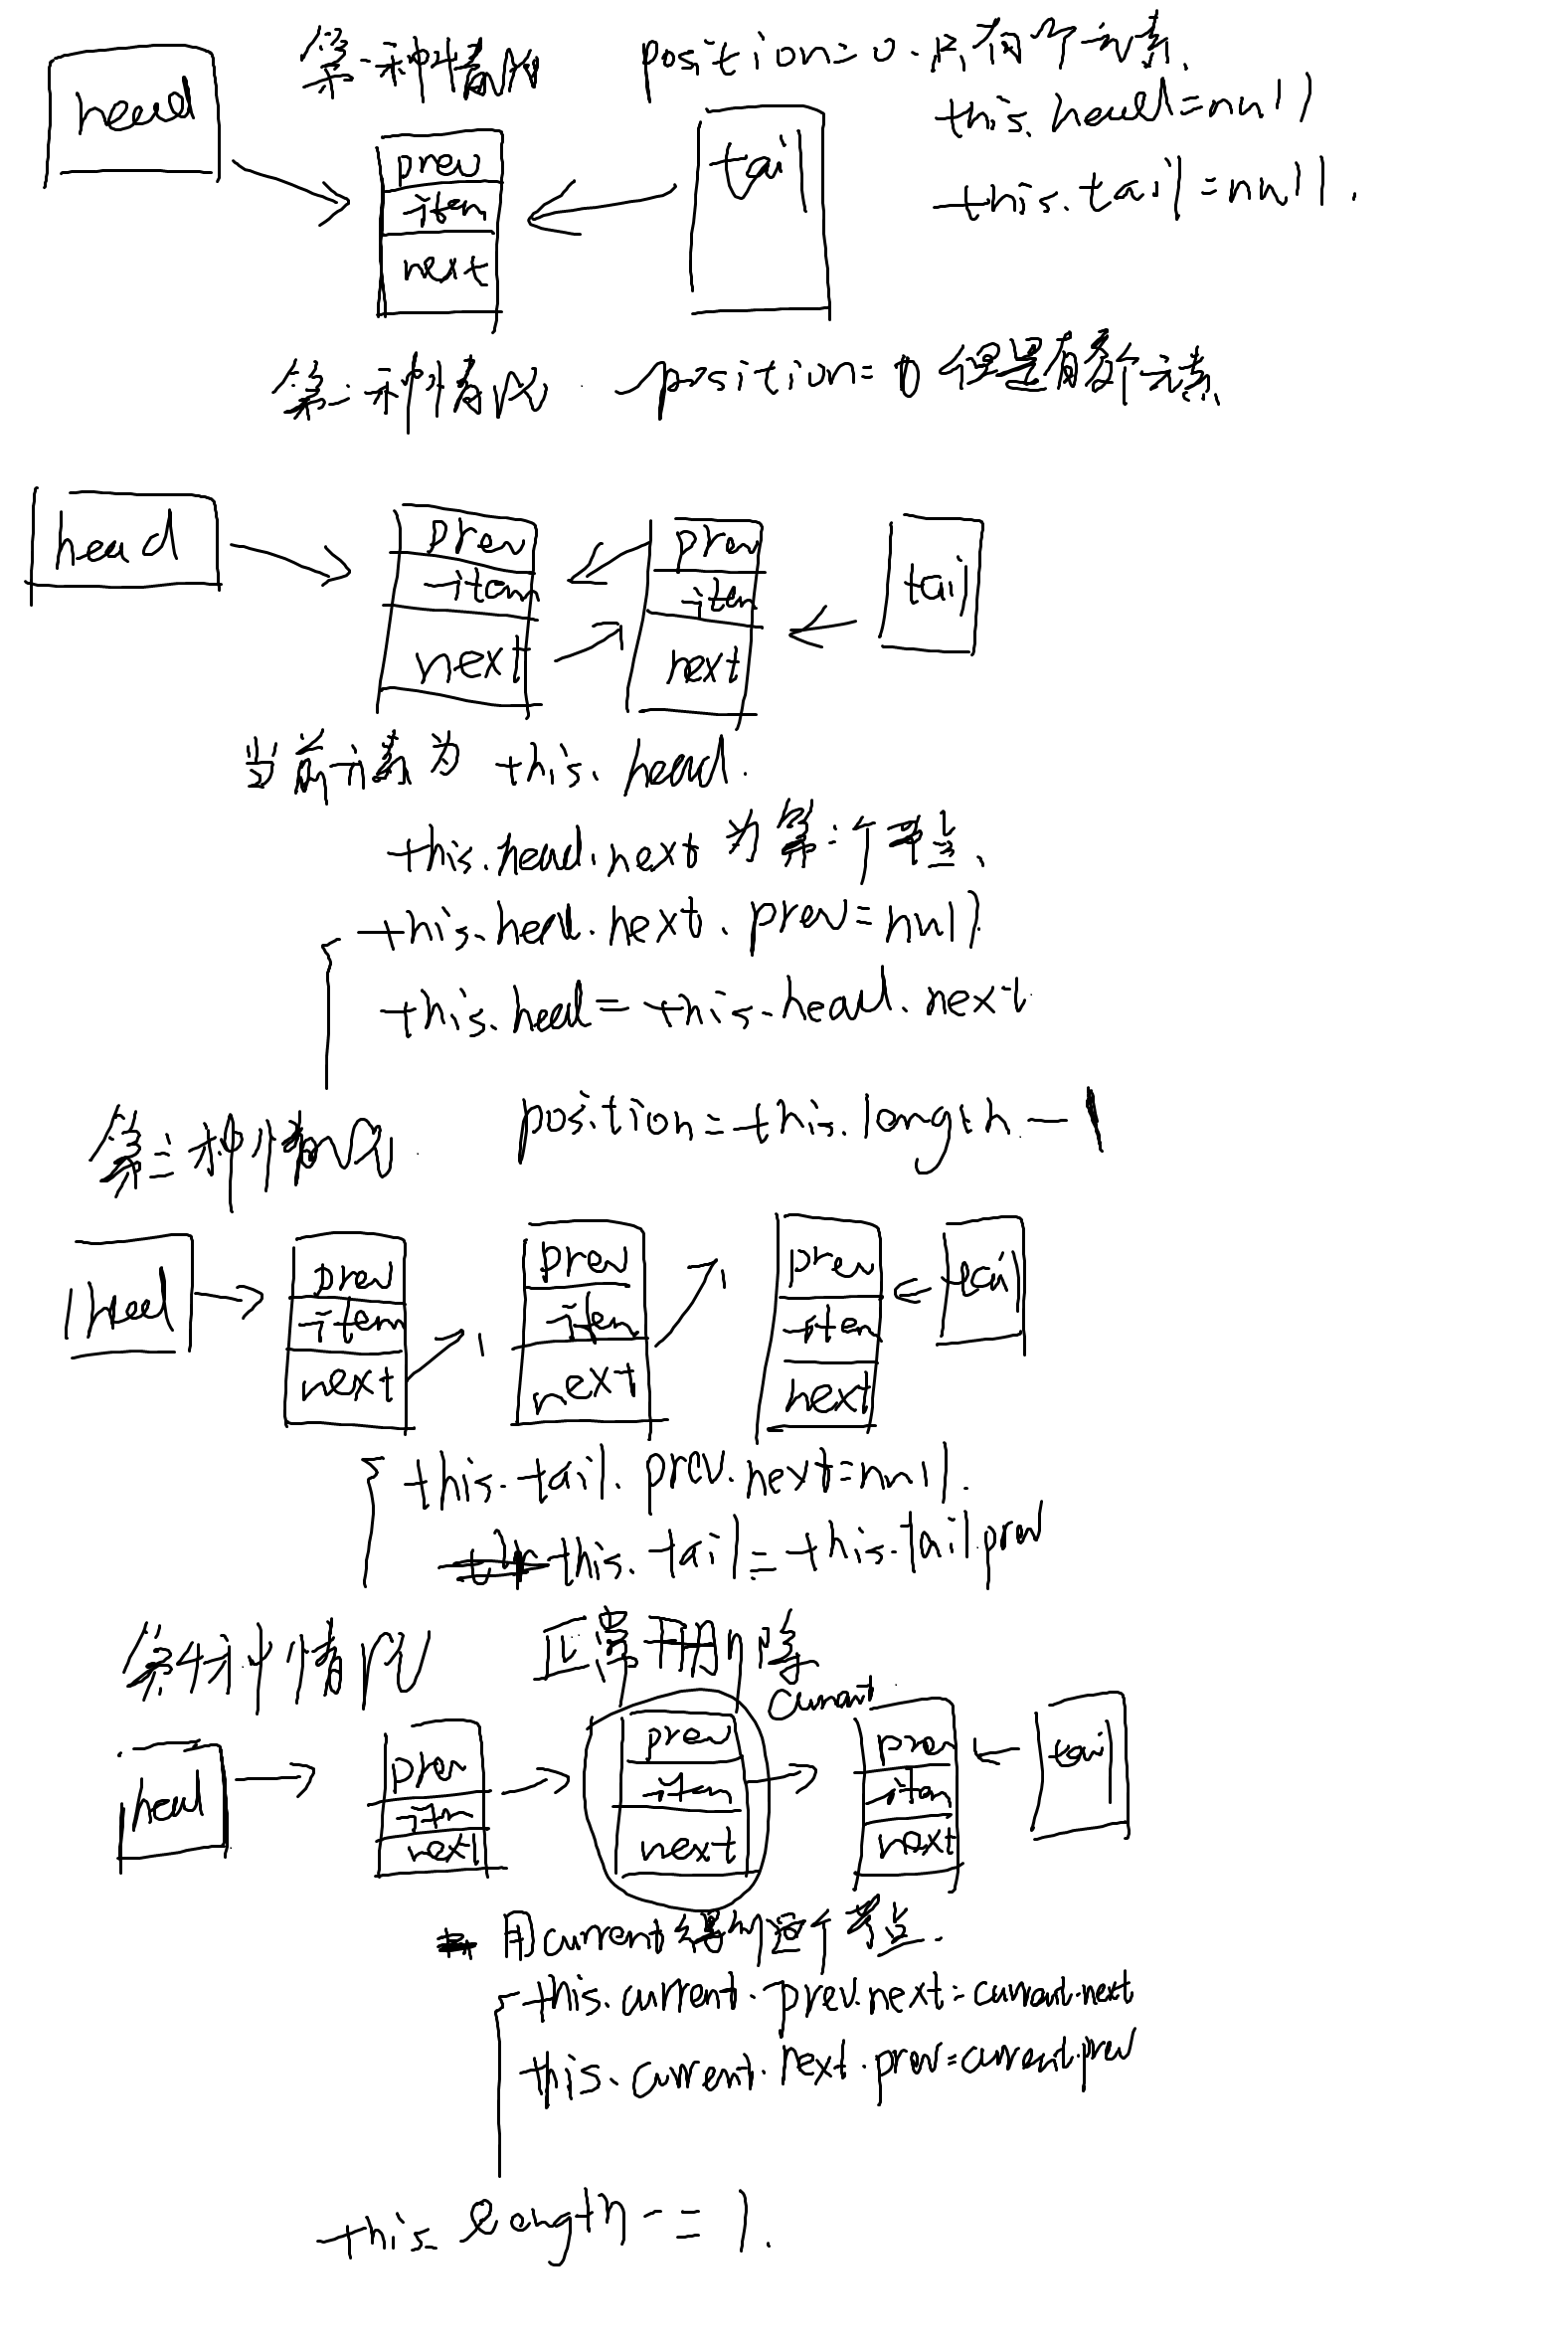 第一种情况 position=0.只有个元素.
head
this.head=null
this.tail=null.
prev
item
next
tail
第二种情况. position=0 但是有多个元素
head
prev
item
next
prev
item
next
tail
当前元素为 this.head.
this.head.next 为第二个节点.
this.head.next.prev=null
this.head=this.head.next
第三种情况. position=this.length-1
head
prev
item
next
prev
item
next
prev
item
next
tail
this.tail.prev.next=null.
this.tail=this.tail.prev
第4种情况 正常删除
current
head
prev
item
next
prev
item
next
prev
item
next
tail
用current得到这个节点.
this.current.prev.next=current.next
this.current.next.prev=current.prev
this.length -= 1.